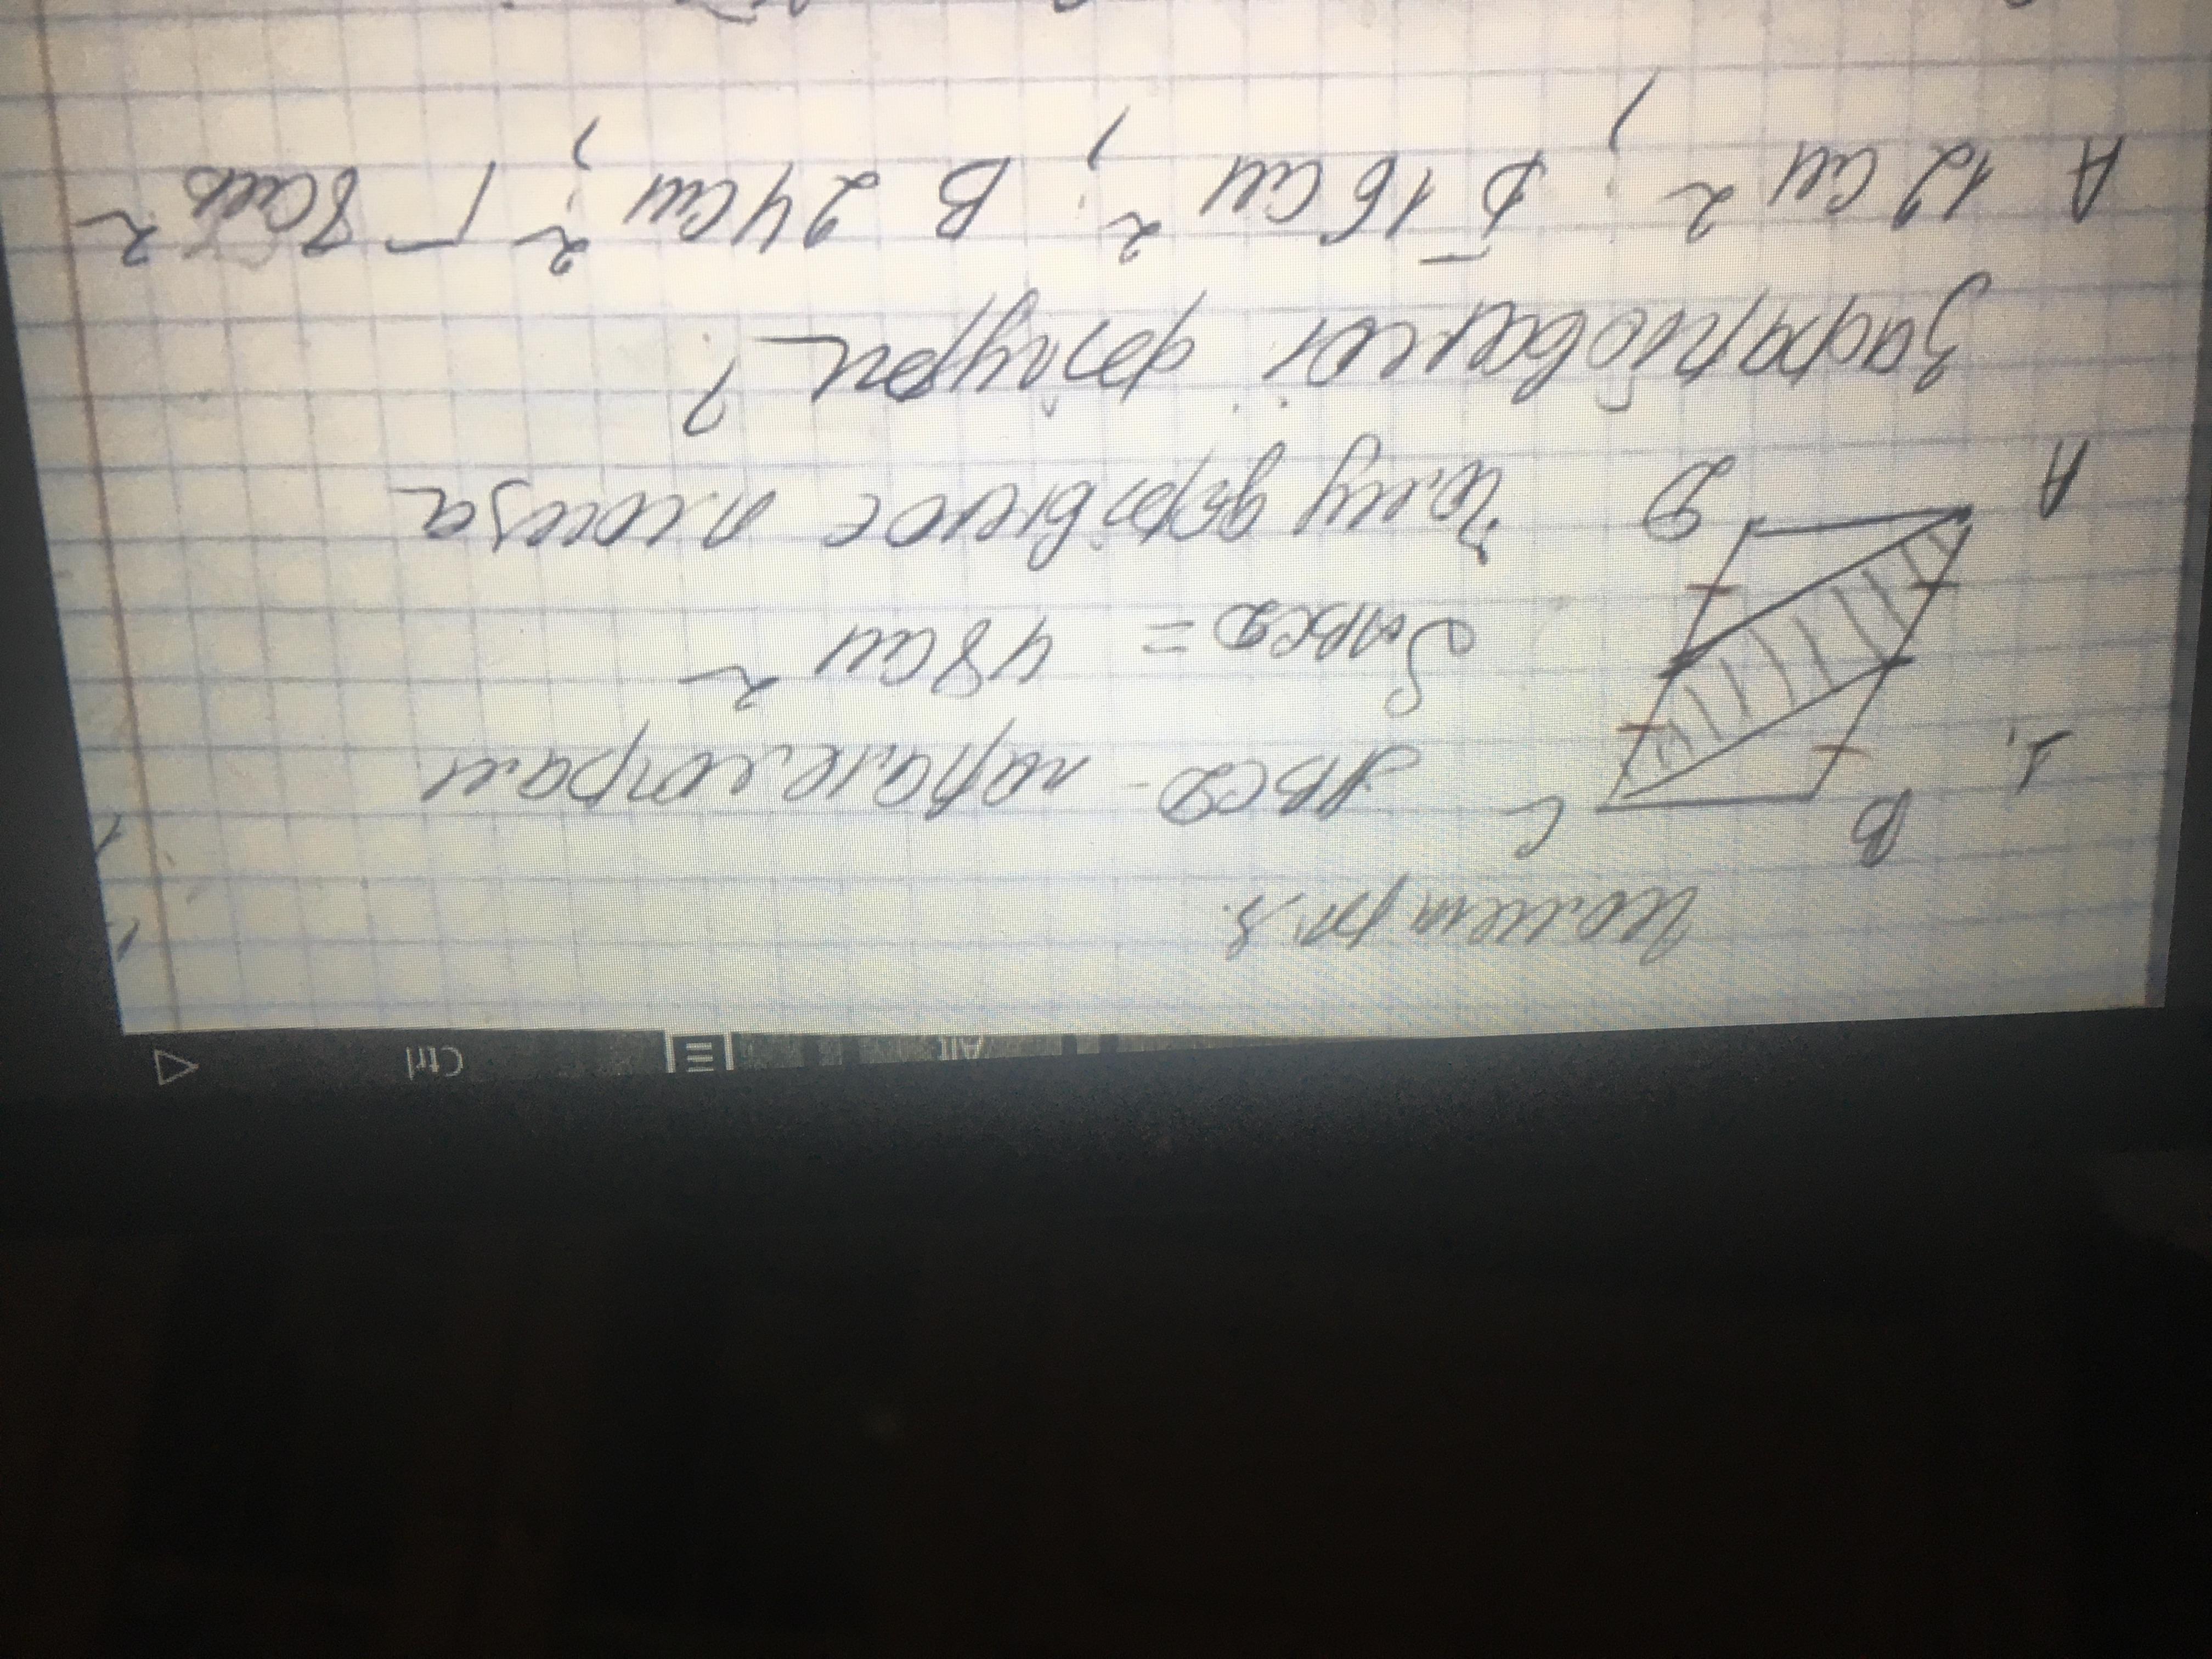 Геометрія.
1. B C ABCD - паралелограм
S ABCD = 48 см²
A D Чому дорівнює площа
Заштрихованої фігури?
А 12 см²; Б 16 см²; В 24 см²; Г 8 см²
Alt Ctrl